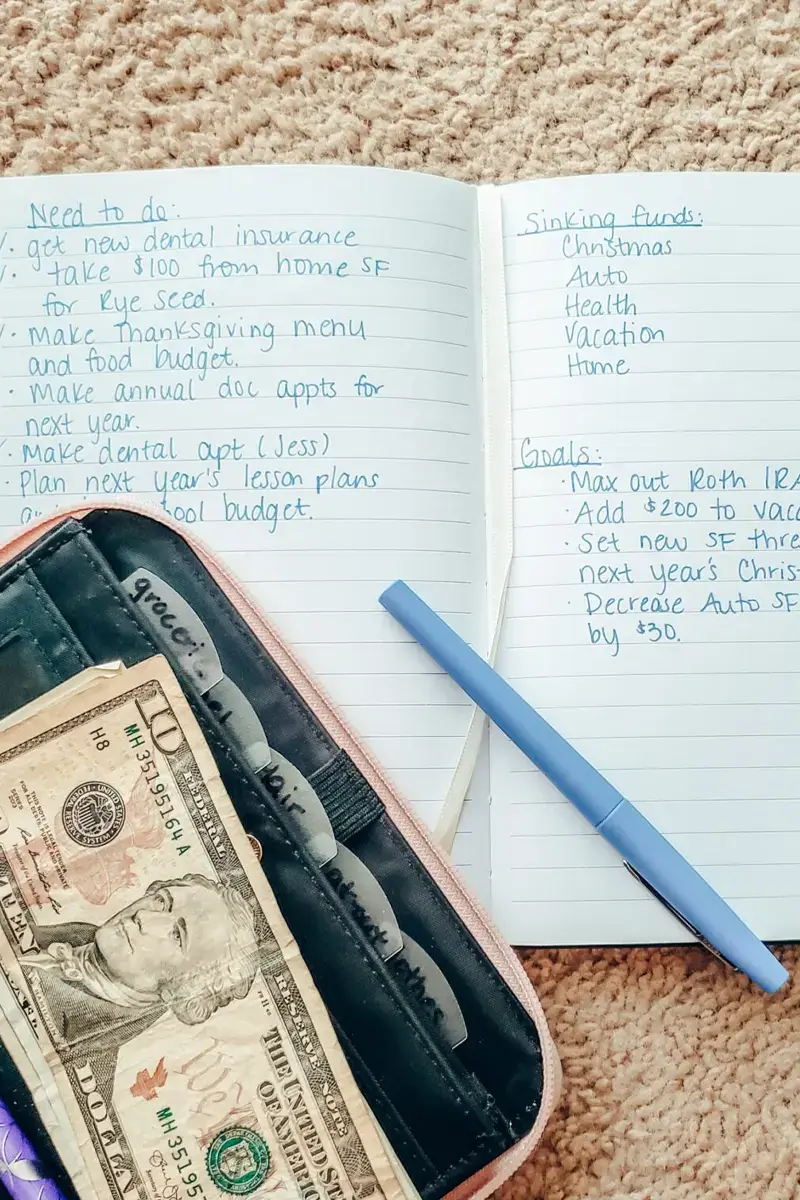 Need to do:
get new dental insurance
take $100 from home SF
for Rye seed.
Make Thanksgiving menu
and food budget.
Make annual doc appts for
next year.
Make dental apt (Jess)
Plan next year's lesson plans
budget.
Sinking funds:
Christmas
Auto
Health
Vacation
Home
Goals:
Max out Roth IRA
Add $200 to
Set new SF
next year's
Decrease Auto SF
by $30.
Hair
10
FEDERAL
RESERVE NOTE
H8
MH35195164A
THE UNITED
OF AMERICA
We
MH35195